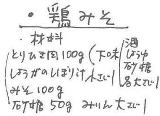 ・鶏みそ
・材料
とりひき肉100g(下味 酒 しょうゆ 砂糖 各大さじ1
しょうがのしぼり汁 小さじ1
みそ100g
砂糖 50g みりん大さじ1